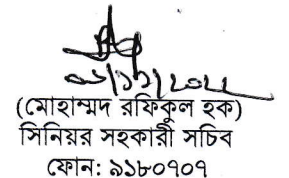 (মোহাম্মদ রফিকুল হক)
সিনিয়র সহকারী সচিব
ফোন: ৯১৮০৭০৭